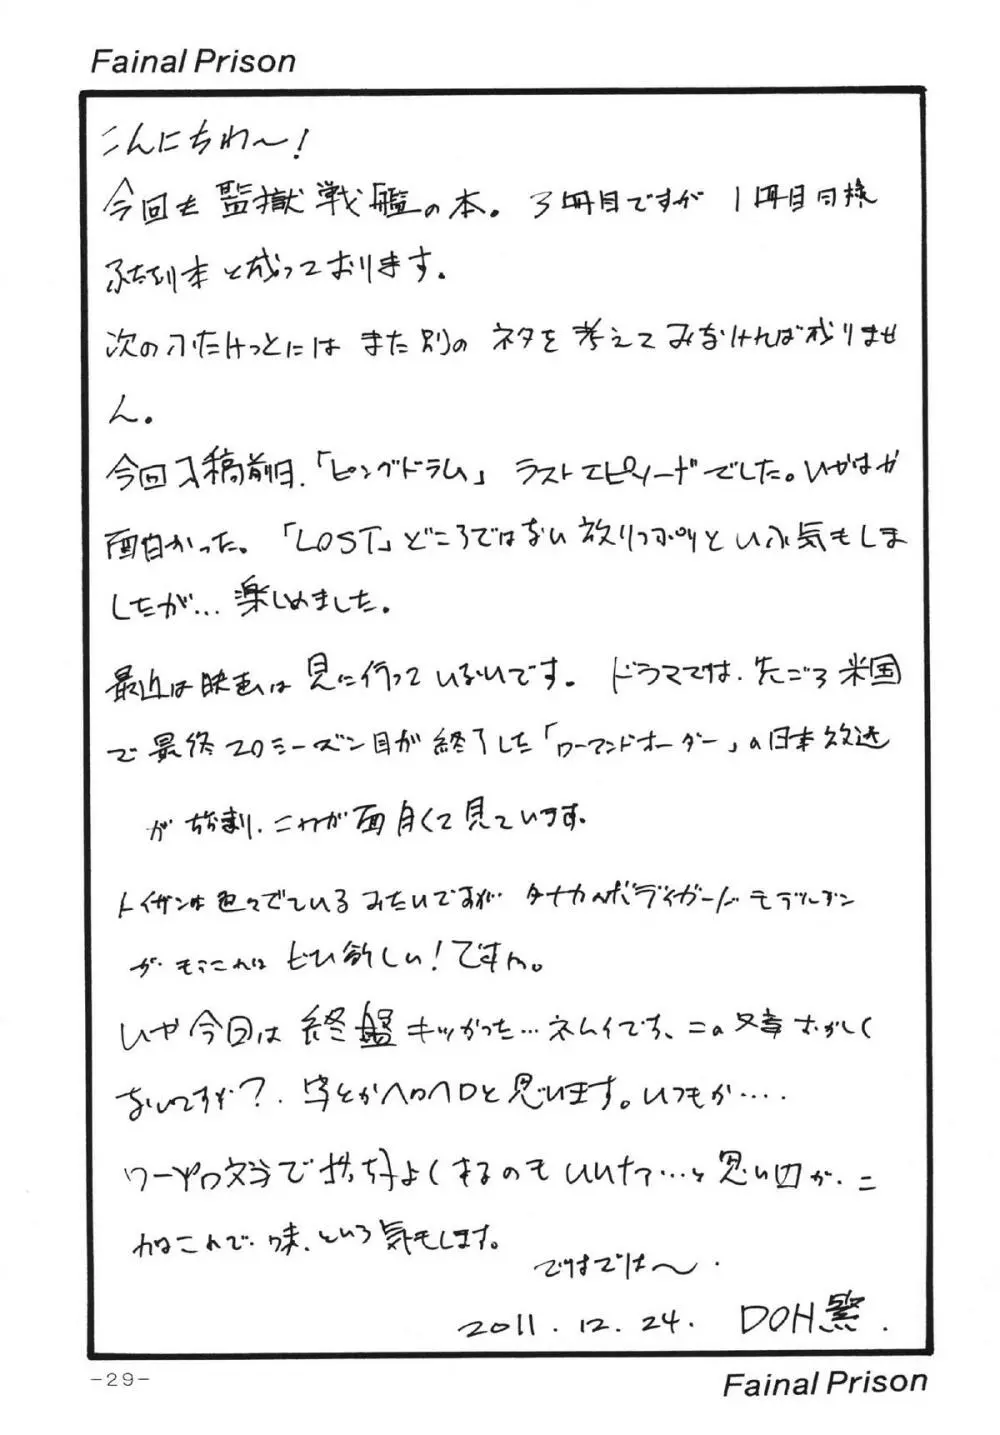 Fainal Prison
こんにちわ〜!
今回も監獄戦艦の本。3冊目ですが1冊目同様
ふたなり本と成っております。
次のふたけっとにはまた別のネタを考えてみなければ成りませ
ん。
今回入稿前日、「ピングドラム」ラストエピソードでした。いやはや
面白かった。「LOST」どころではない放りっぷりという気もしま
したが…楽しめました。
最近は映画は見に行っていないです。ドラマでは、先ごろ米国
で最終20シーズン目が終了した「ローアンドオーダー」の日本放送
が始まり、これが面白くて見ています。
トイガンは色々でているみたいですが… タナカのボディガードモデルガン
が、もうこれは ぜひ欲しい!ですね。
いや今回は終盤キツかった…ネムイです、この文章おかしく
ないですか?、字とかヘロヘロと思います。いつもか‥‥
ワープロ文字で打ち、よくするのもいいなァ…と思いつつ
これはこれで、味、という気もします。
ではでは〜.
2011.12.24. DOH繁.
-29-
Fainal Prison